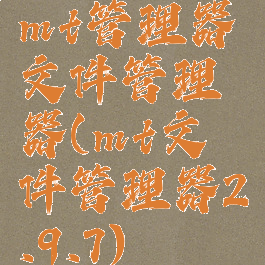 mt管理器
文件管理
器(mt文
件管理器2
.9.7)